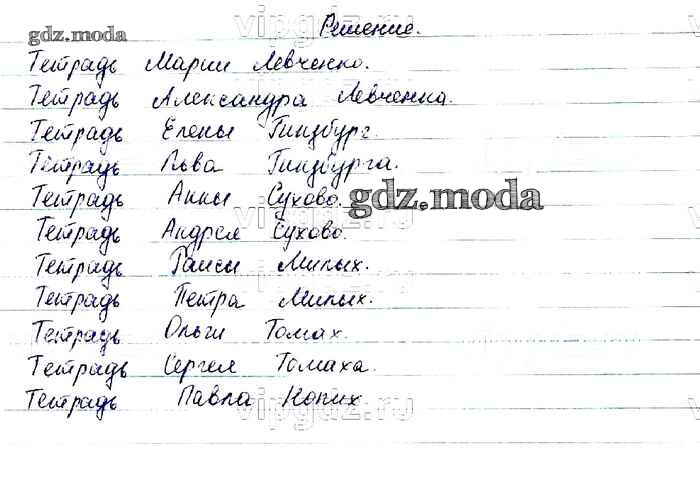 vipgdz.ru
Решение.
gdz.moda
Тетрадь Марии Левченко.
Тетрадь Александра Левченка.
Тетрадь Елены Гинзбург.
Тетрадь Льва Гинзбурга.
Тетрадь Анны Сухово.
gdz.moda
Тетрадь Андрея Сухово.
Тетрадь Раисы Милых.
Тетрадь Петра Милых.
Тетрадь Ольги Томах.
Тетрадь Сергея Томаха.
Тетрадь Павла Копих
vipgdz.ru